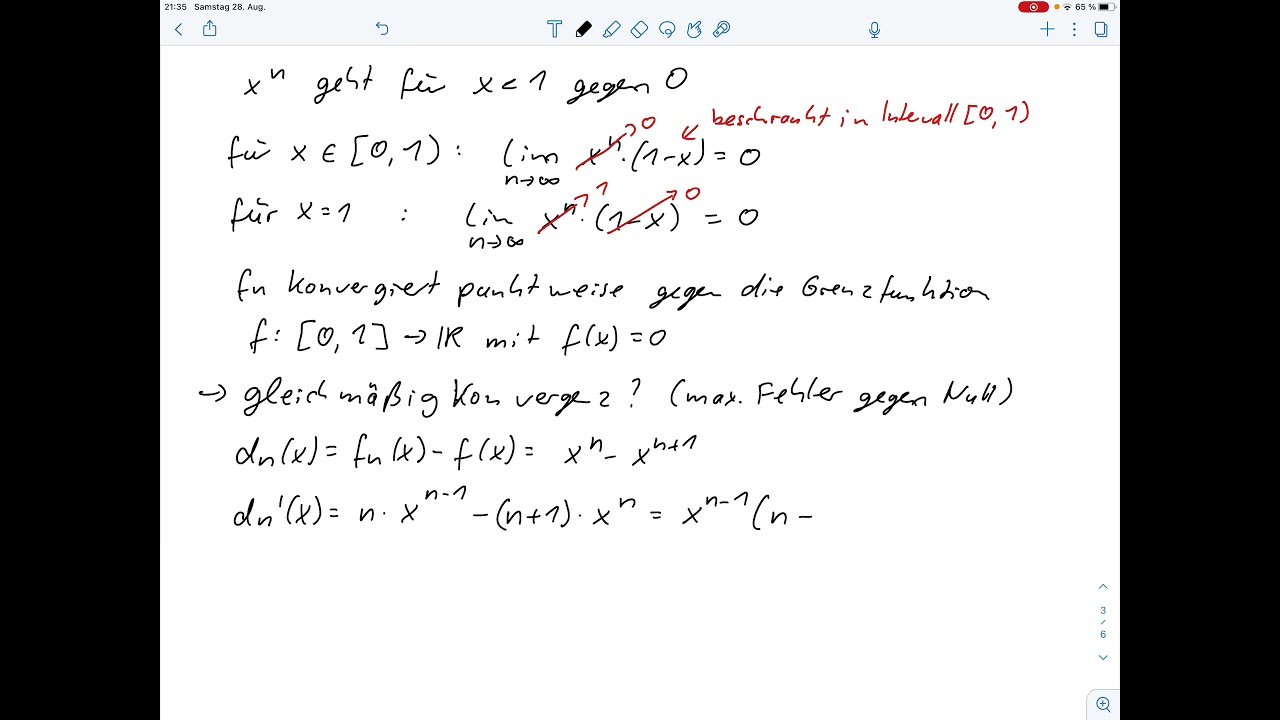 21:35 Samstag 28. Aug. 65 %
T
xⁿ geht für x < 1 gegen 0
beschränkt in Intervall [0, 1)
für x ∈ [0, 1) : lim n→∞ xⁿ · (1-x) = 0
0
für x = 1 : lim n→∞ xⁿ · (1-x) = 0
1 0
fn konvergiert punktweise gegen die Grenzfunktion
f: [0, 1] → IR mit f(x) = 0
→ gleichmäßig Konvergenz? (max. Fehler gegen Null)
dn(x) = fn(x) - f(x) = xⁿ - xⁿ⁺¹
dn'(x) = n · xⁿ⁻¹ - (n+1) · xⁿ = xⁿ⁻¹ (n -
3
/
6